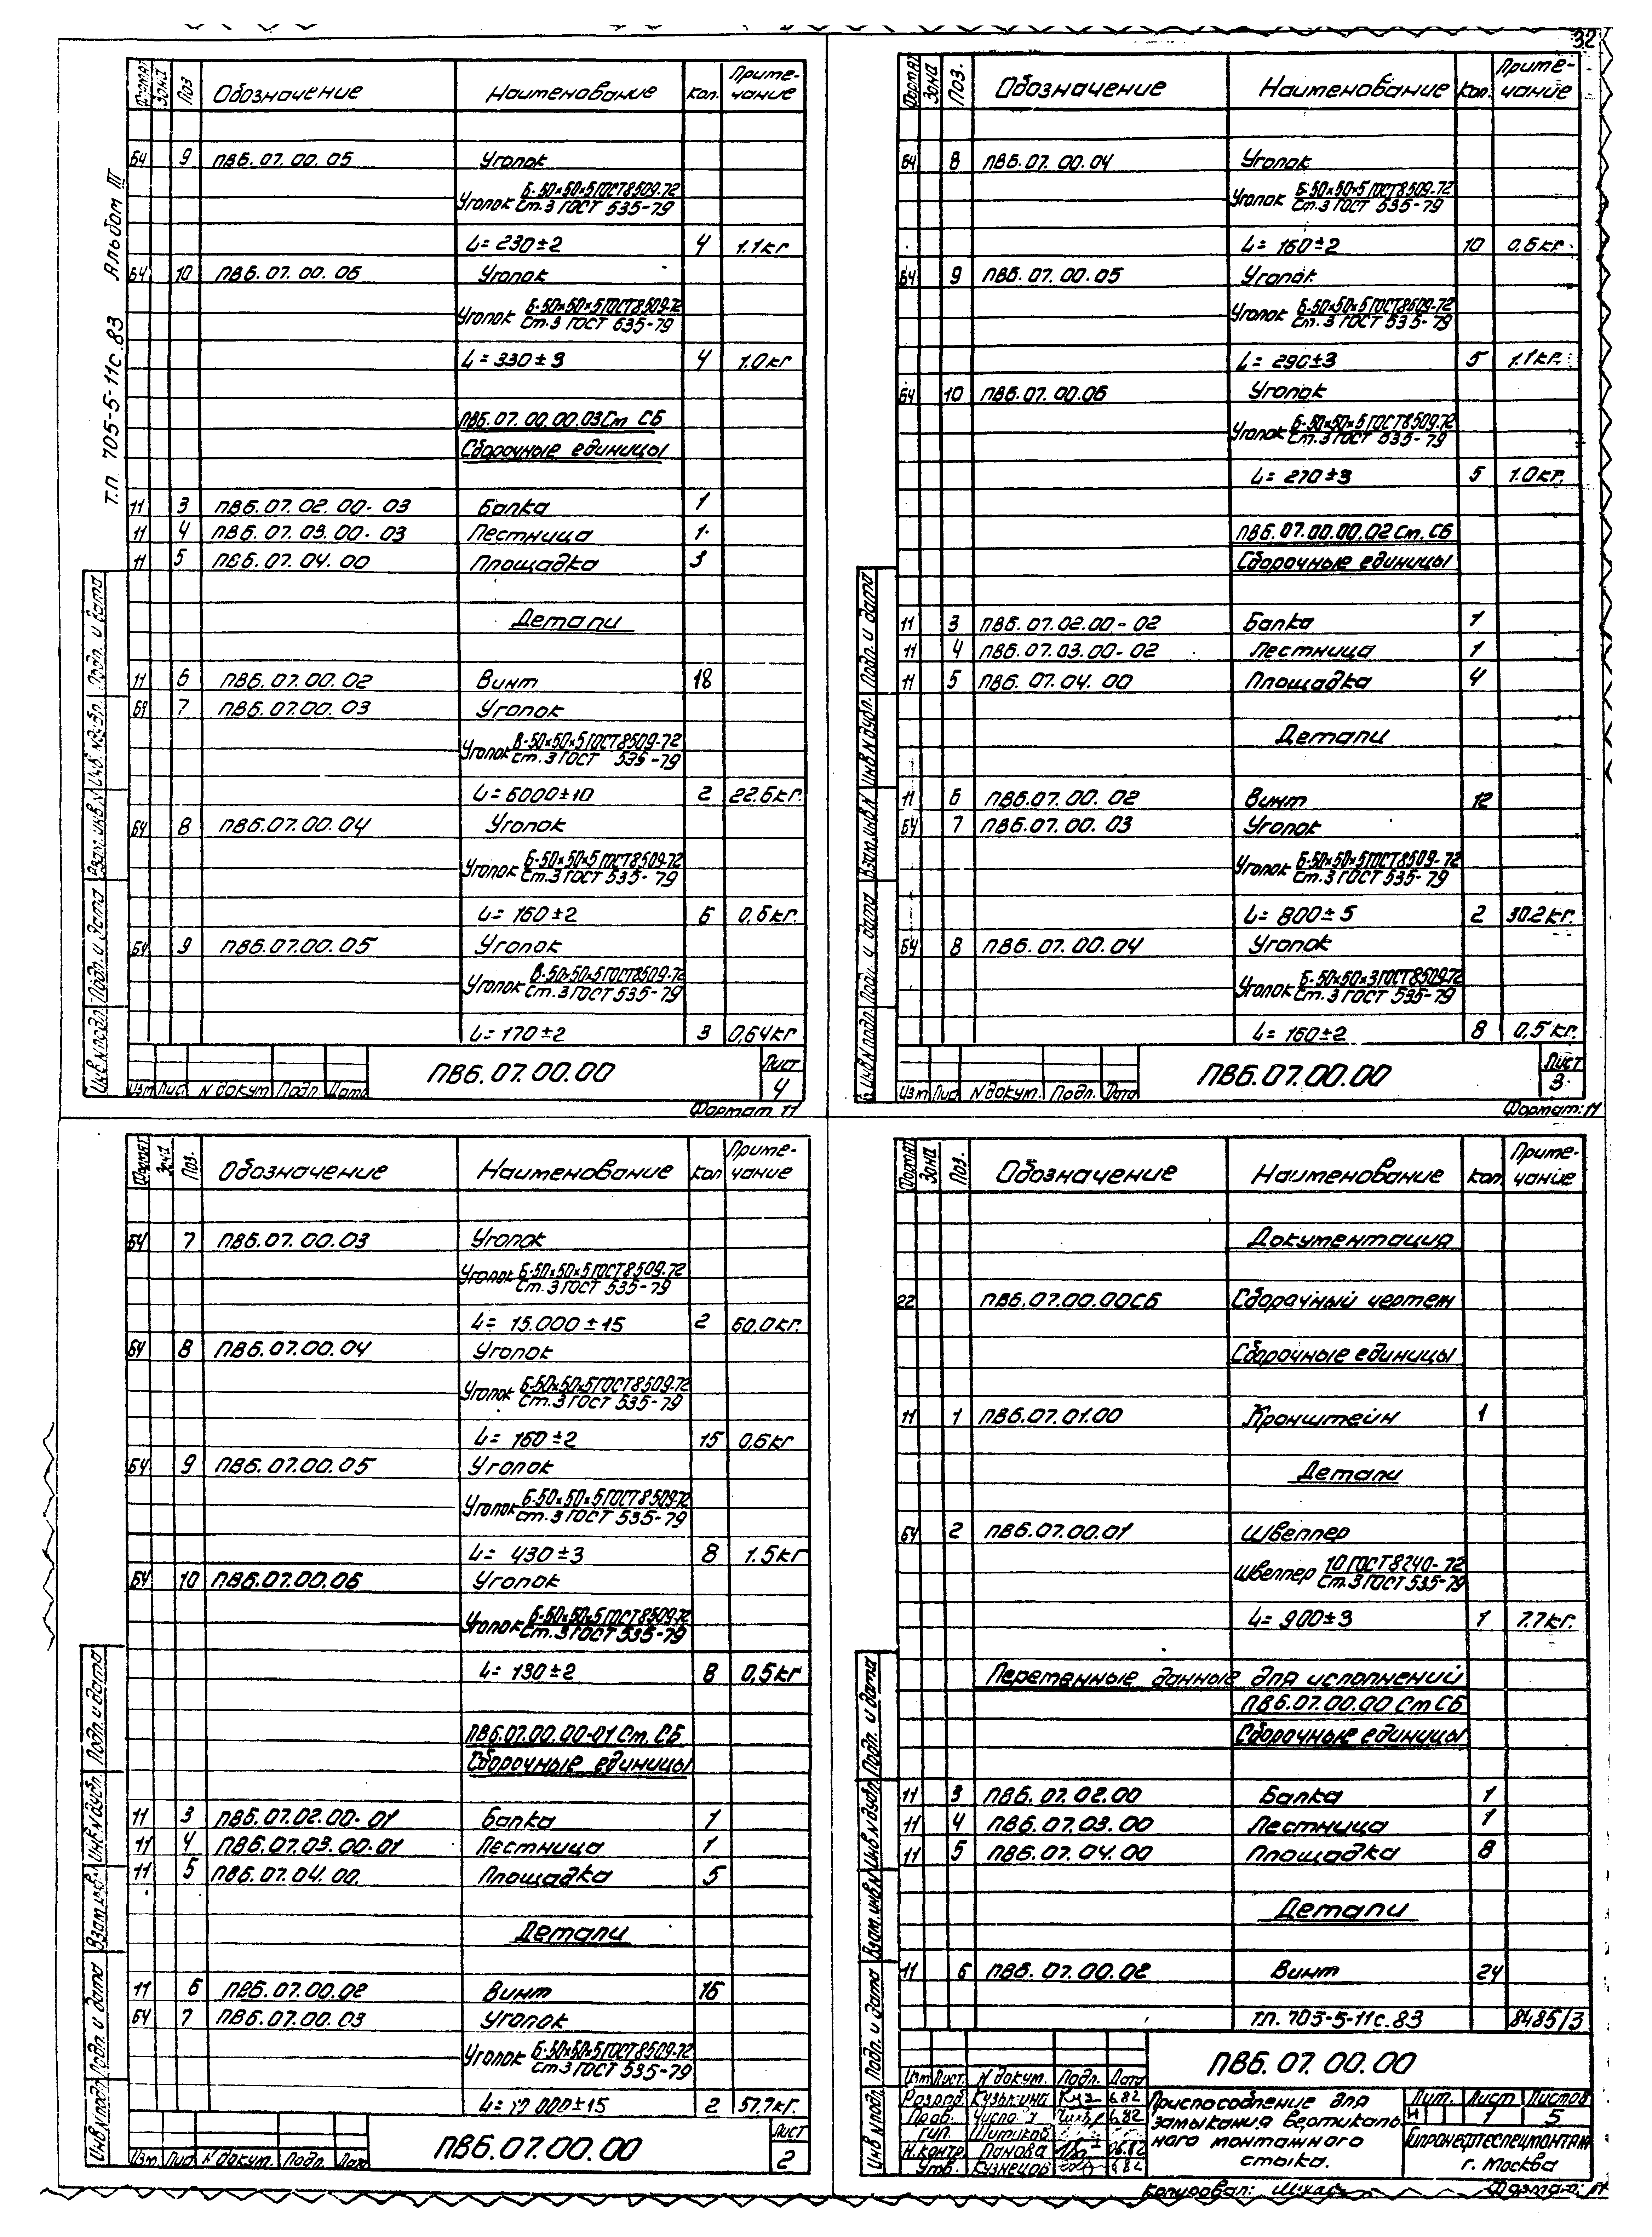 32
Т.П. 705-5-11с.83 Альбом III
Формат Зона Поз Обозначение Наименование Кол. Приме-чание
БЧ 9 ПВ6.07.00.05 Уголок
Уголок Б-50×50×5 ГОСТ 8509-72
Ст.3 ГОСТ 535-79
L= 230±2 4 1.1кг
БЧ 10 ПВ6.07.00.06 Уголок
Уголок Б-50×50×5 ГОСТ 8509-72
Ст.3 ГОСТ 535-79
L= 330±3 4 1.0кг
ПВ6.07.00.00.03 Ст СБ
Сборочные единицы
11 3 ПВ6.07.02.00-03 Балка 1
11 4 ПВ6.07.03.00-03 Лестница 1
11 5 ПВ6.07.04.00 Площадка 3
Детали
11 6 ПВ6.07.00.02 Винт 18
БЧ 7 ПВ6.07.00.03 Уголок
Уголок В-50×50×5 ГОСТ 8509-72
Ст.3 ГОСТ 535-79
L= 6000±10 2 22.6кг.
БЧ 8 ПВ6.07.00.04 Уголок
Уголок Б-50×50×5 ГОСТ 8509-72
Ст.3 ГОСТ 535-79
L= 160±2 6 0,6кг.
БЧ 9 ПВ6.07.00.05 Уголок
Уголок В-50×50×5 ГОСТ 8509-72
Ст.3 ГОСТ 535-79
L= 170±2 3 0,64кг
Инв N подл. Подп. и дата Взам. инв. N Инв. N дубл. Подп. и дата
Изм Лис. N докум. Подп. Дата ПВ6.07.00.00 Лист 4
Формат 11
Формат Зона Поз. Обозначение Наименование Кол. Приме-чание
БЧ 8 ПВ6.07.00.04 Уголок
Уголок Б-50×50×5 ГОСТ 8509-72
Ст.3 ГОСТ 535-79
L= 160±2 10 0.6кг.
БЧ 9 ПВ6.07.00.05 Уголок
Уголок Б-50×50×5 ГОСТ 8509-72
Ст.3 ГОСТ 535-79
L= 290±3 5 1.1кг.
БЧ 10 ПВ6.07.00.06 Уголок
Уголок Б-50×50×5 ГОСТ 8509-72
Ст.3 ГОСТ 535-79
L= 270±3 5 1.0кг.
ПВ6.07.00.00.02 Ст. СБ
Сборочные единицы
11 3 ПВ6.07.02.00-02 Балка 1
11 4 ПВ6.07.03.00-02 Лестница 1
11 5 ПВ6.07.04.00 Площадка 4
Детали
11 6 ПВ6.07.00.02 Винт 12
БЧ 7 ПВ6.07.00.03 Уголок
Уголок Б-50×50×5 ГОСТ 8509-72
Ст.3 ГОСТ 535-79
L= 800±5 2 30.2кг.
БЧ 8 ПВ6.07.00.04 Уголок
Уголок Б-50×50×3 ГОСТ 8509-72
Ст.3 ГОСТ 535-79
L= 160±2 8 0,5кг.
Инв N подл. Подп. и дата Взам. инв. N Инв N дубл. Подп. и дата
Изм Лис N докум. Подп. Дата ПВ6.07.00.00 Лист 3
Формат: 11
Формат Зона Поз. Обозначение Наименование Кол Приме-чание
БЧ 7 ПВ6.07.00.03 Уголок
Уголок Б-50×50×5 ГОСТ 8509-72
Ст.3 ГОСТ 535-79
L= 15.000±15 2 60.0кг.
БЧ 8 ПВ6.07.00.04 Уголок
Уголок Б-50×50×5 ГОСТ 8509-72
Ст.3 ГОСТ 535-79
L= 160±2 15 0,6кг
БЧ 9 ПВ6.07.00.05 Уголок
Уголок Б-50×50×5 ГОСТ 8509-72
Ст.3 ГОСТ 535-79
L= 430±3 8 1.5кг
БЧ 10 ПВ6.07.00.06 Уголок
Уголок Б-50×50×5 ГОСТ 8509-72
Ст.3 ГОСТ 535-79
L= 130±2 8 0,5кг
ПВ6.07.00.00-01 Ст. СБ
Сборочные единицы
11 3 ПВ6.07.02.00-01 Балка 1
11 4 ПВ6.07.03.00-01 Лестница 1
11 5 ПВ6.07.04.00. Площадка 5
Детали
11 6 ПВ6.07.00.02 Винт 16
БЧ 7 ПВ6.07.00.03 Уголок
Уголок Б-50×50×5 ГОСТ 8509-72
Ст.3 ГОСТ 535-79
000±15 2 57.7кг.
Инв N подл. Подп. и дата Взам. инв. N Инв. N дубл. Подп. и дата
Изм. Лис N докум. Подп. Дата ПВ6.07.00.00 Лист 2
Формат Зона Поз. Обозначение Наименование Кол. Приме-чание
Документация
22 ПВ6.07.00.00СБ Сборочный чертеж
Сборочные единицы
11 1 ПВ6.07.01.00 Кронштейн 1
Детали
БЧ 2 ПВ6.07.00.01 Швеллер
Швеллер 10 ГОСТ 8240-72
Ст.3 ГОСТ 535-79
L= 900±3 1 7.7кг.
Переменные данные для исполнений
ПВ6.07.00.00 Ст СБ
Сборочные единицы
11 3 ПВ6.07.02.00 Балка 1
11 4 ПВ6.07.03.00 Лестница 1
11 5 ПВ6.07.04.00 Площадка 8
Детали
11 6 ПВ6.07.00.02 Винт 24
Т.П. 705-5-11с.83 8485/3
Инв N подл. Подп. и дата Взам. инв. N Инв N дубл. Подп. и дата
ПВ6.07.00.00
Изм Лист. N докум. Подп. Дата
Разраб. Кузькина 6.82
Пров. 6.82
Гип. Шитиков
Н.контр Панова 06.82
Утв. Кузнецов 6.82
Приспособление для
замыкания вертикаль-
ного монтажного
стыка.
Лит. Лист Листов
И 1 5
Гипронефтеспецмонтаж
г. Москва
Копировал: Формат: 11